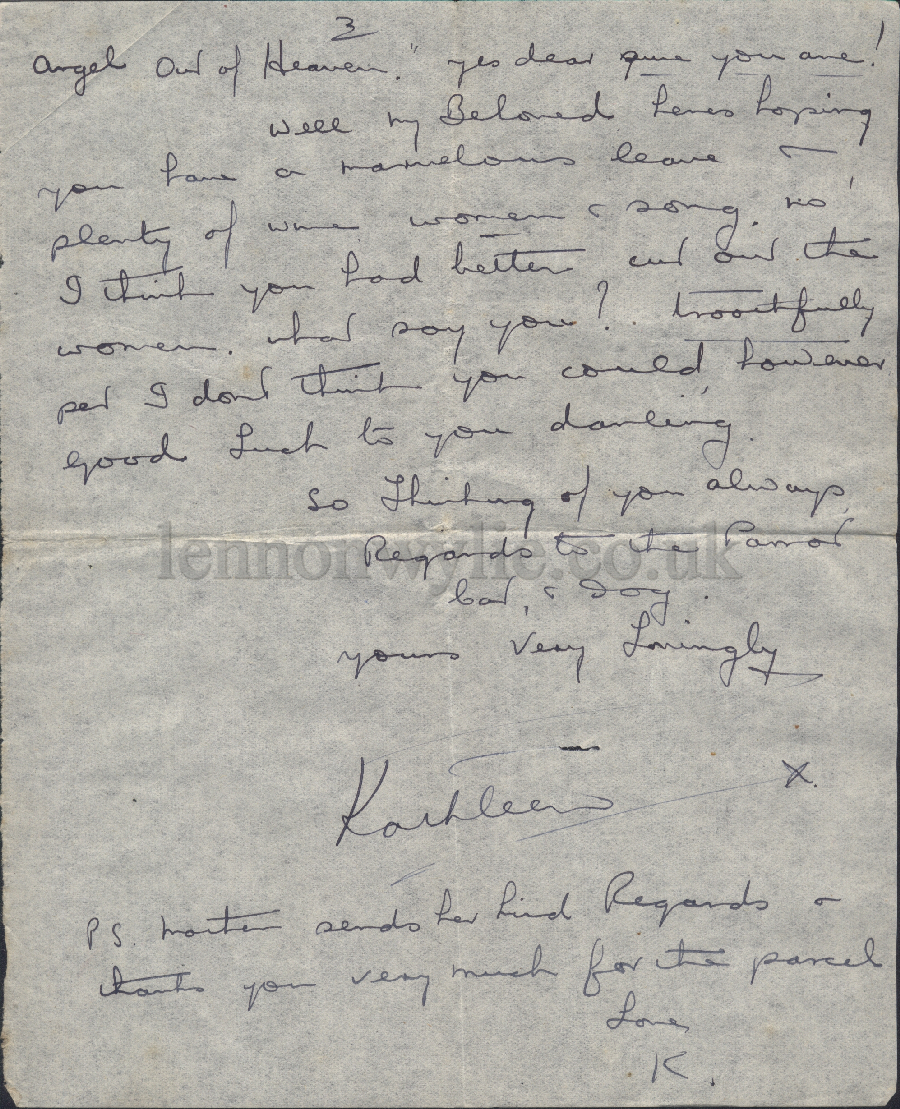 3
Angel Out of Heaven." yes dear sure you are!
well my Beloved heres hoping
you have a marvelous leave &
plenty of wine women & song. no
I think you had better cut out the
women. what say you? trooothfully
pet I dont think you could, however
good Luck to you darling.
So Thinking of you always,
Regards to the Parrot
Cat, & Dog.
yours Very Lovingly
Kathleen X.
PS. sends her kind Regards &
thanks you very much for the parcel
Love,
K.
lennonwylie.co.uk